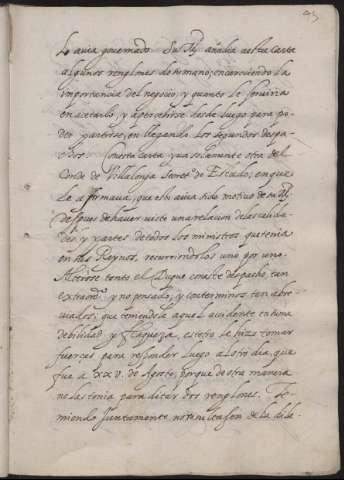 lo avia governado. Su Mg.d añadia a esta carta
algunos renglones de su mano, encareciendo la
importancia del negocio, y quanto se serviria
en acetarlo, y apercebirse desde luego para po-
der partirse, en llegando los segundos despa-
chos. Con esta carta vino solamente otra del
Conde de Villalonga Secret.o de Estado, en que
le afirmava, que esta avia sido motivo de su Mg.d
despues de haver visto una relacion de las calida-
des, y partes de todos los ministros que tenia
en sus Reynos, recorriendolos uno por uno.
Alterose tanto el Duque con este despacho, tan
extraord.o y no pensado, y con terminos tan abre-
viados, que temiendo la aquel acidente en tanta
debilidad y flaqueza, esto se la hizo tomar
fuerças para responder luego al otro dia, que
fue a XXV. de Agosto, porque de otra manera
no las tenia para ditar dos renglones. Te-
miendo juntamente no tan la razon de la dila-